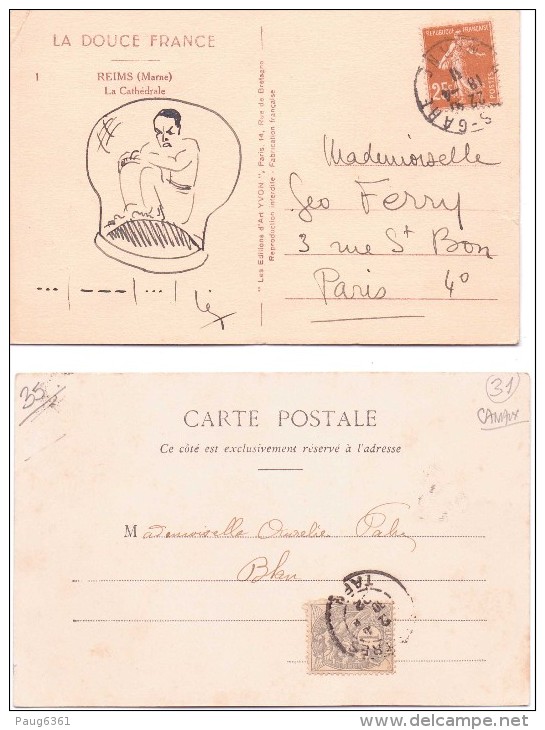 LA DOUCE FRANCE
1
REIMS (Marne)
La Cathédrale
... | --- | ... |
" Les Editions d'Art YVON ", Paris, 14, Rue de Bretagne
Reproduction interdite - Fabrication française
REPUBLIQUE FRANÇAISE
25c
POSTES
Mademoiselle
Geo Ferry
3 rue St Bon
Paris 4º
35
31
CARTE POSTALE
Ce côté est exclusivement réservé à l'adresse
Mademoiselle Aurelie
TARN
Paug6361
www.delcampe.net